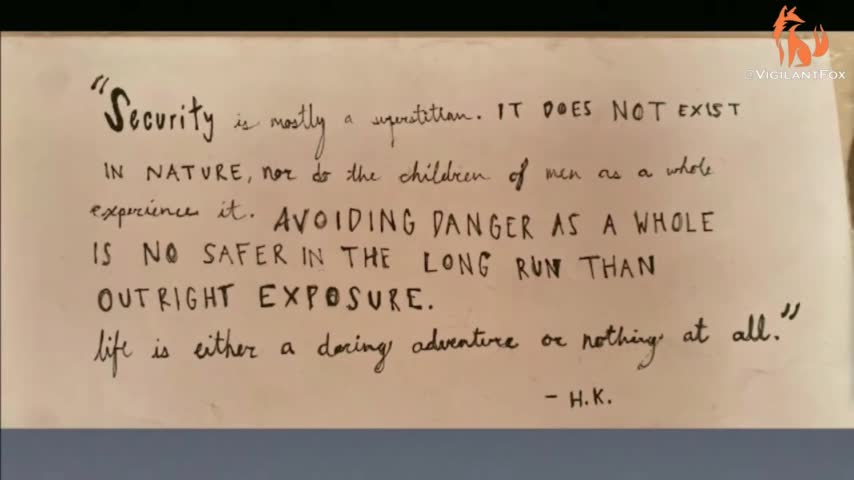 @VIGILANTFOX
"Security is mostly a superstition. IT DOES NOT EXIST
IN NATURE, nor do the children of men as a whole
experience it. AVOIDING DANGER AS A WHOLE
IS NO SAFER IN THE LONG RUN THAN
OUTRIGHT EXPOSURE.
life is either a daring adventure or nothing at all."
- H.K.